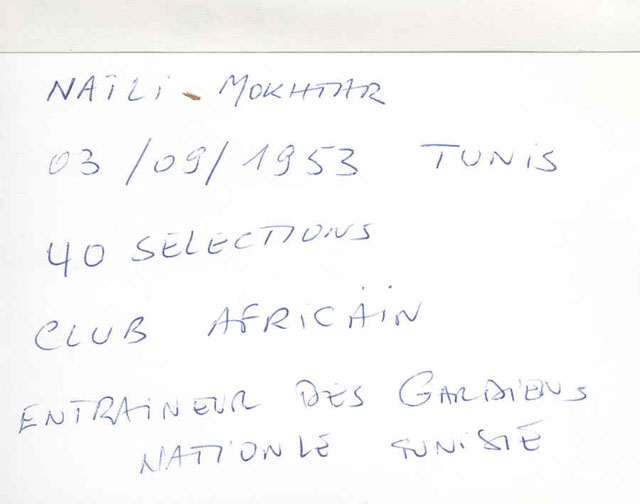 NAÏLI - MOKHTAR
03/09/1953 TUNIS
40 SELECTIONS
CLUB AFRICAIN
ENTRAINEUR DES GARDIENS
NATIONLE TUNISIE